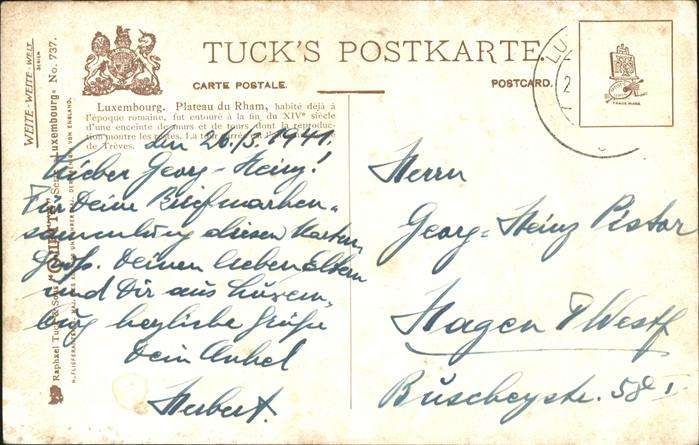 WEITE-WEITE-WELT
SERIEN
TUCK'S POSTKARTE.
CARTE POSTALE.
POSTCARD.
TRADE MARK
LU
2
Raphael Tuck & Sons "OILETTE" Serie "Luxembourg" No. 737.
Luxembourg. Plateau du Rham, habité déjà à
l'époque romaine, fut entouré à la fin du XIVe siècle
d'une enceinte de murs et de tours dont la reproduc-
tion montre les restes. La tour
de Trèves.
den 26./5. 1941.
Lieber Georg-Heinz!
Für Deine Briefmarken-
sammlung diesen Karten
Gruß. Deinen lieben Eltern
und Dir aus Luxem-
burg herzliche Grüße
Dein Onkel
Herbert.
Herrn
Georg-Heinz Pistor
Hagen Westf
Büscheystr. 58 I